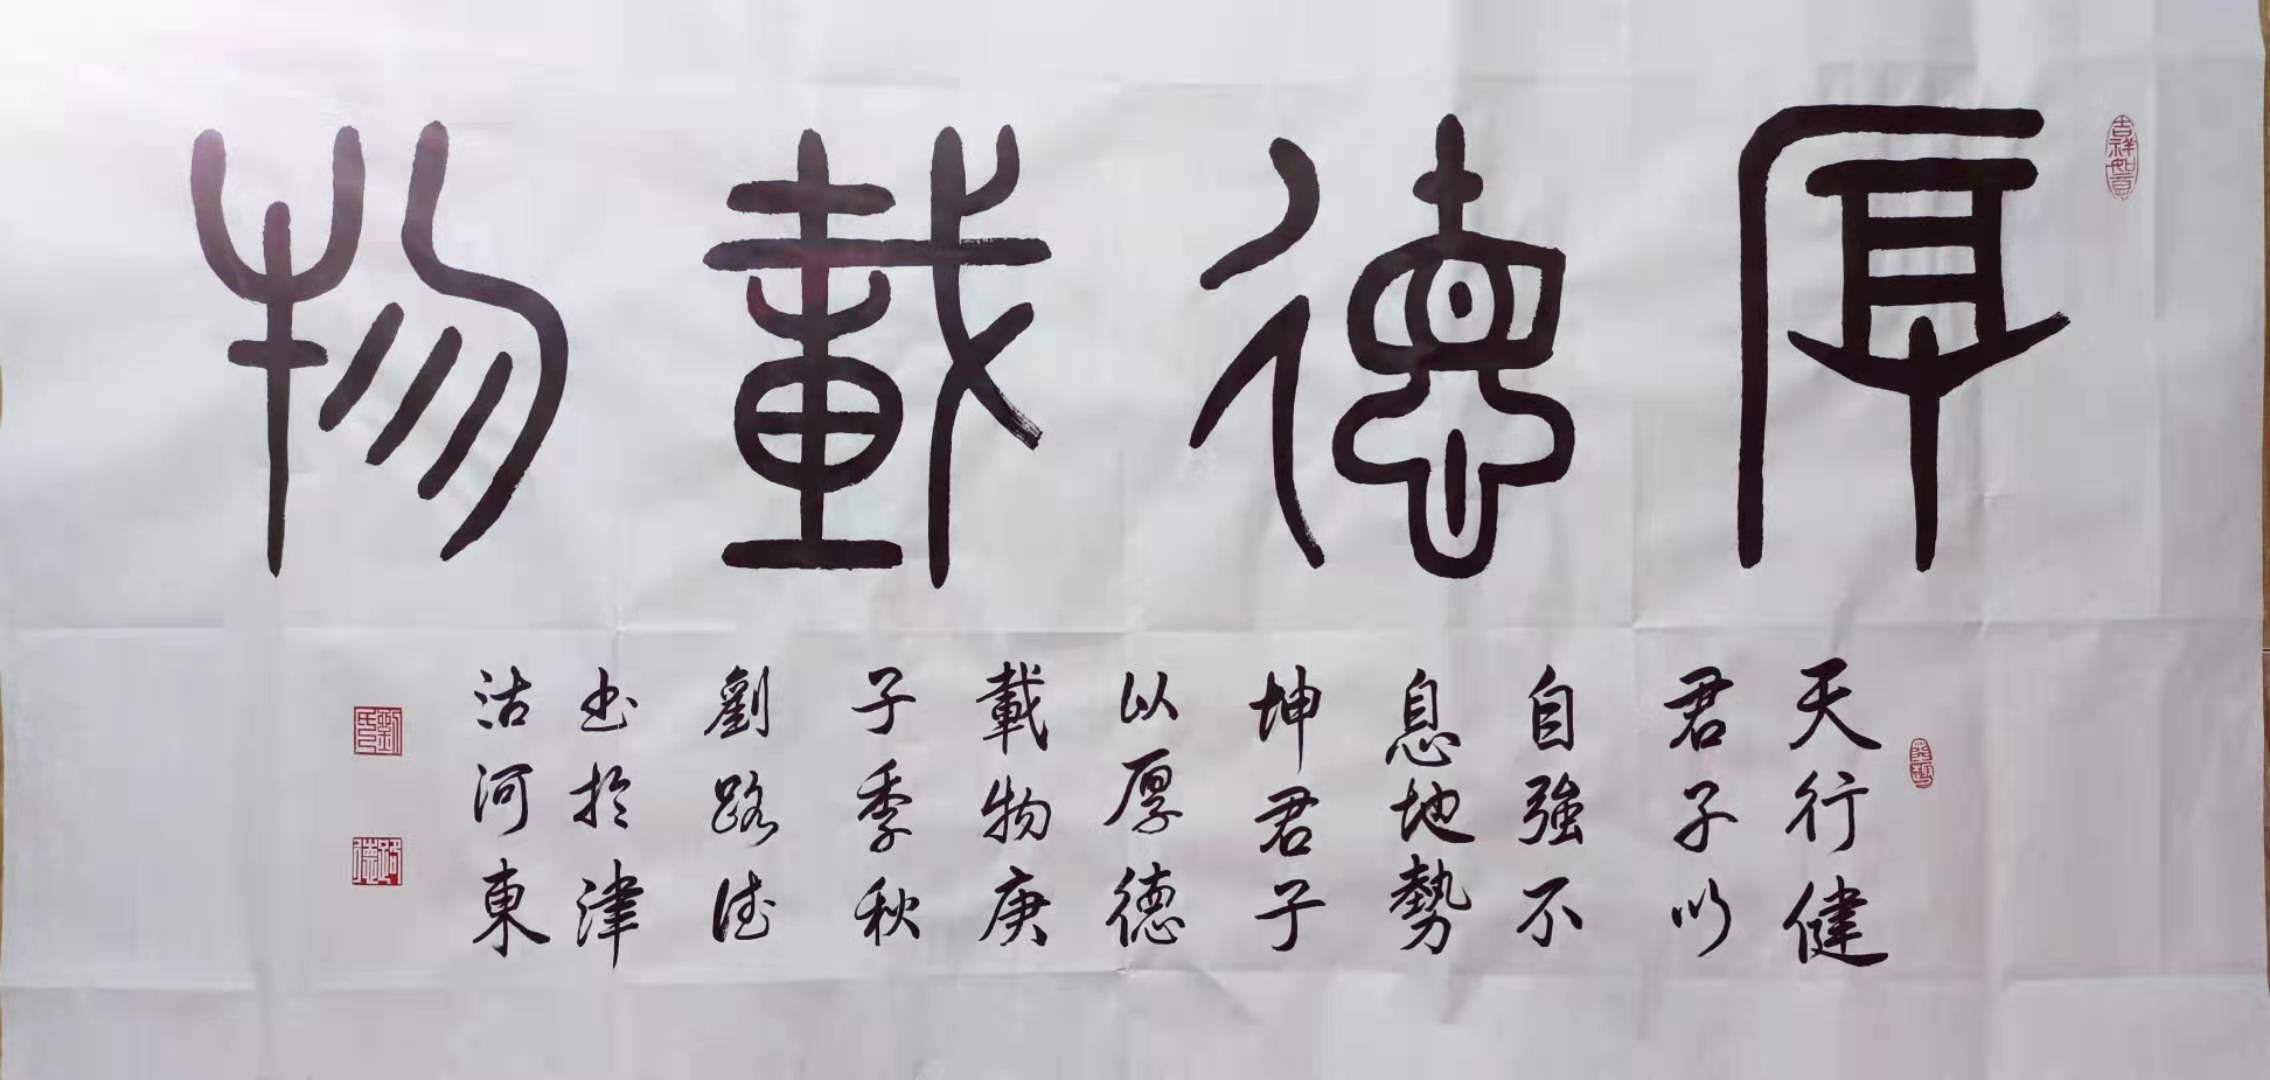 厚德載物
吉祥如意
天行健
君子以
自強不
息地勢
坤君子
以厚德
載物庚
子季秋
劉路德
書於津
沽河東
劉氏
路德